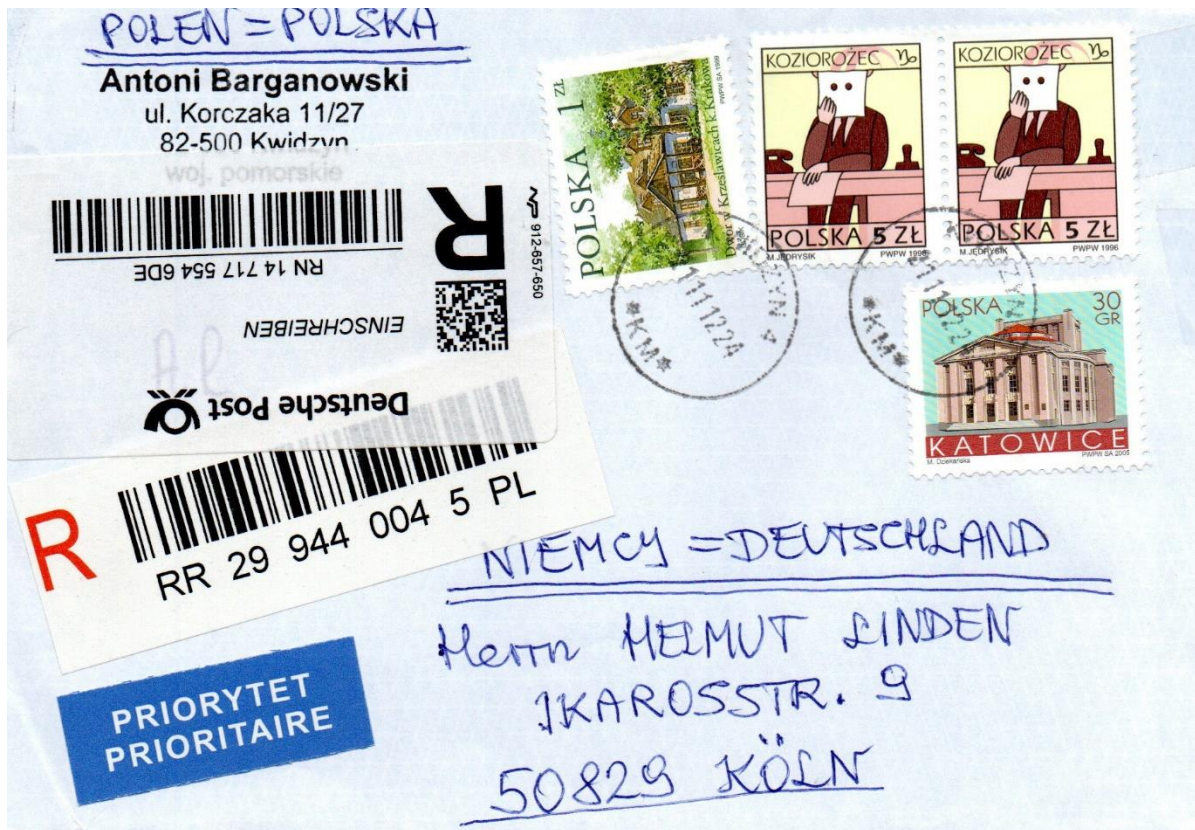 POLEN = POLSKA
Antoni Barganowski
ul. Korczaka 11/27
82-500 Kwidzyn
woj. pomorskie
R
912-657-650
RN 14 717 554 6DE
EINSCHREIBEN
Deutsche Post
R
RR 29 944 004 5 PL
PRIORYTET
PRIORITAIRE
POLSKA 1 ZŁ
Dwór w Krzesławicach k. Krakowa
PWPW SA 1999
KOZIOROŻEC
POLSKA 5 ZŁ
M.JĘDRYSIK PWPW 1996
KOZIOROŻEC
POLSKA 5 ZŁ
M.JĘDRYSIK PWPW 1996
POLSKA 30
GR
KATOWICE
M. Dziekańska PWPW SA 2005
*KM*
*KM*
NIEMCY = DEUTSCHLAND
Herrn HELMUT LINDEN
IKAROSSTR. 9
50829 KÖLN